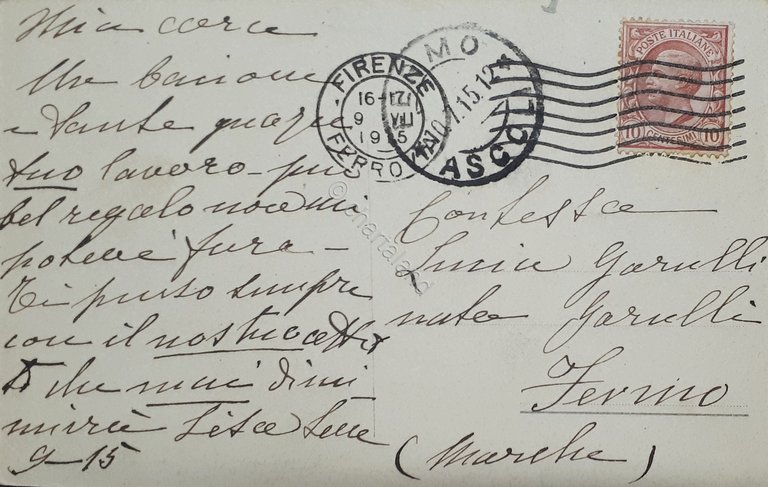 Mia cara
Un bacione
e tante grazie
tuo lavoro - più
bel regalo non mi
potevi fare -
Ti penso sempre
con il nostro affet
to che mai dimi
nuirà
9-15
FIRENZE
16-17
9 VII
1915
FERROVIA
MO
10.7.15.12
ASCOLI
POSTE ITALIANE
10 CENTESIMI 10
Contessa
Garulli
nata Garulli
Fermo
(Marche)
© chartaland